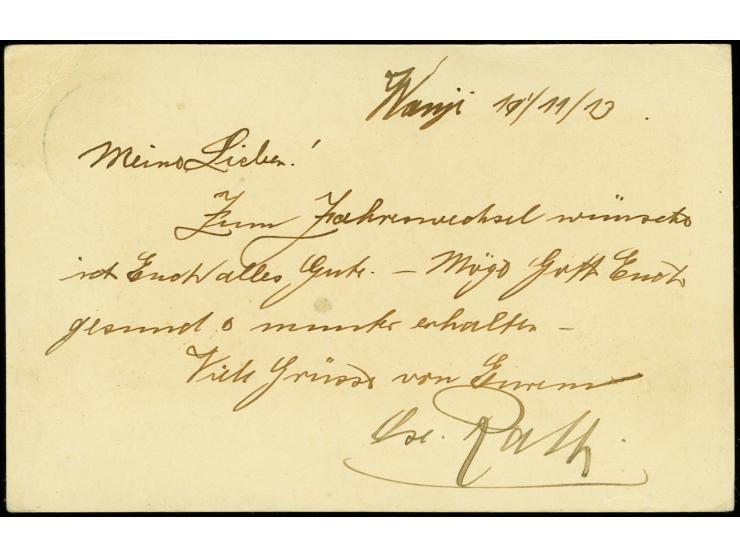 Wanji 10/11/13.
Meine Lieben!
Zum Jahreswechsel wünsche
ich Euch alles Gute. — Möge Gott Euch
gesund & munter erhalten —
Viele Grüsse von Eurem
Rath.